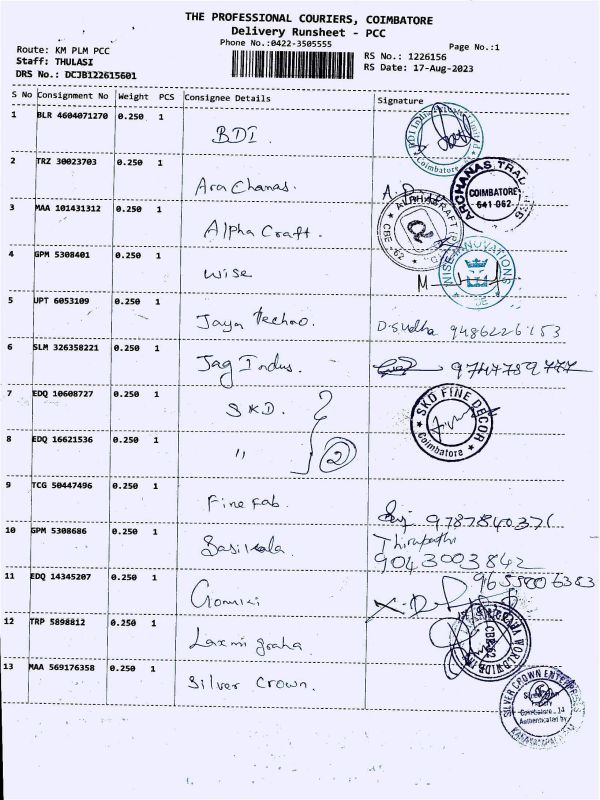 THE PROFESSIONAL COURIERS, COIMBATORE
Delivery Runsheet - PCC
Phone No.:0422-3505555
Page No.:1
Route: KM PLM PCC
RS No.: 1226156
Staff: THULASI
RS Date: 17-Aug-2023
DRS No.: DCJB122615601
S No Consignment No Weight PCS Consignee Details Signature
1 BLR 4604071270 0.250 1 BDI.
Coimbatore
2 TRZ 30023703 0.250 1 Ara Chanas.
ARCHANAS
COIMBATORE
641 062
3 MAA 101431312 0.250 1 Alpha Craft.
CBE - 62
4 GPM 5308401 0.250 1 Wise
WISE INNOVATIONS
5 JPT 6053109 0.250 1 Jaya Techno. D.Sudha 9486226153
6 SLM 326358221 0.250 1 Jag Indus. 9747759777
7 EDQ 10608727 0.250 1 SKD.
SKD FINE DECOR
Coimbatore
8 EDQ 16621536 0.250 1 " 2
9 TCG 50447496 0.250 1 Fine Fab. 9787840371
10 GPM 5308686 0.250 1 Sasikala. Thirupathi
9043003842
11 EDQ 14345207 0.250 1
12 TRP 5898812 0.250 1 Laxmi graha
13 MAA 569176358 0.250 1 Silver Crown.
SILVER CROWN ENTERPRISES
Coimbatore - 14
Authenticated by